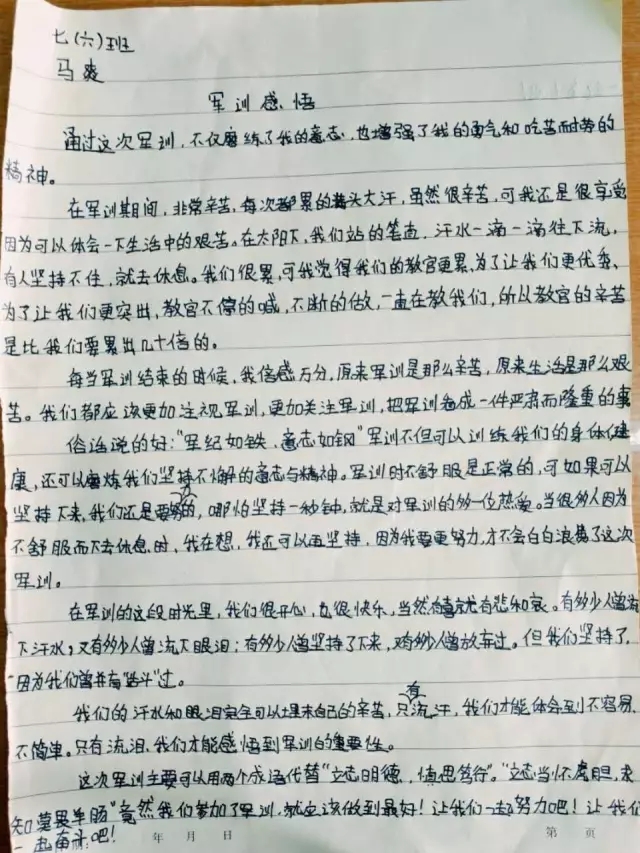 七(六)班
马爽
军训感悟
通过这次军训,不仅磨练了我的意志,也增强了我的勇气和吃苦耐劳的
精神。
在军训期间,非常辛苦,每次都累的满头大汗,虽然很辛苦,可我还是很享受
因为可以体会一下生活中的艰苦。在太阳下,我们站的笔直,汗水一滴一滴往下流,
有人坚持不住,就去休息。我们很累,可我觉得我们的教官更累,为了让我们更优秀,
为了让我们更突出,教官不停的喊,不断的做,一直在教我们,所以教官的辛苦
是比我们要累出几十倍的。
每当军训结束的时候,我倍感万分,原来军训是那么辛苦,原来生活是那么艰
苦。我们都应该更加注视军训,更加关注军训,把军训当成一件严肃而隆重的事
俗话说的好:"军纪如铁,意志如钢"军训不但可以训练我们的身体健
康,还可以磨炼我们坚持不懈的意志与精神。军训时不舒服是正常的,可如果可以
坚持下来,我们还是要努力的,哪怕坚持一秒钟,就是对军训的多一位热爱。当很多人因为
不舒服而下去休息时,我在想,我还可以再坚持,因为我要更努力,才不会白白浪费了这次
军训。
在军训的这段时光里,我们很开心,也很快乐,当然有喜就有悲和哀。有多少人曾流
下汗水,又有多少人曾流下眼泪;有多少人曾坚持了下来,又有多少人曾放弃过。但我们坚持了,
因为我们曾并肩"奋斗"过。
我们的汗水和眼泪完全可以埋末自己的辛苦,只有流汗,我们才能体会到不容易,
不简单。只有流泪,我们才能感悟到军训的重要性。
这次军训主要可以用两个成语代替"立志明德,慎思笃行"。"立志当怀虎胆,求
知莫畏羊肠"竟然我们参加了军训,就应该做到最好!让我们一起努力吧!让我们
一起奋斗吧!
年 月 日 第 页